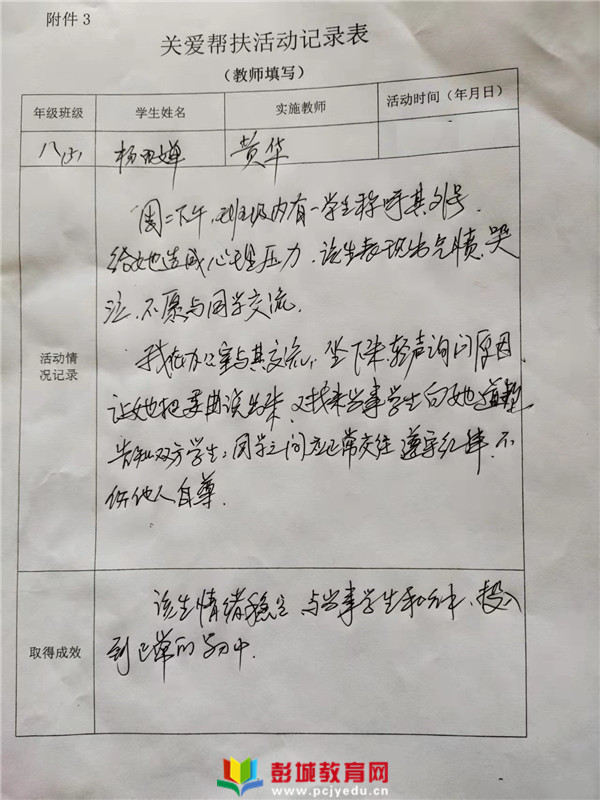 附件 3
关爱帮扶活动记录表
（教师填写）
年级班级 学生姓名 实施教师 活动时间（年月日）
八(5) 杨 婵 黄华
周二下午，班级内有一学生称呼其外号，
给她造成心理压力，该生表现出气愤、哭
泣，不愿与同学交流。
我在办公室与其交流，坐下来，轻声询问原因，
让她把委曲说出来，又找来当事学生向她道歉
告知双方学生：同学之间应正常交往，遵守纪律，不
伤他人自尊。
活动情
况记录
该生情绪稳定，与当事学生和好，投入
到正常的学习中。
取得成效
彭城教育网
www.pcjyedu.cn